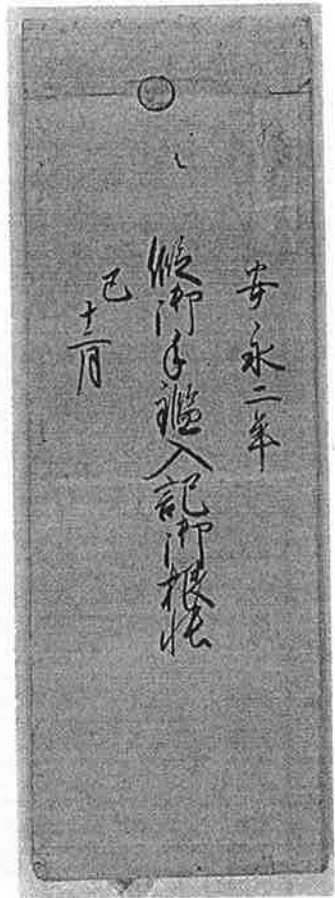 安永二年
縦御手鑑入記御根帳
巳
十二月